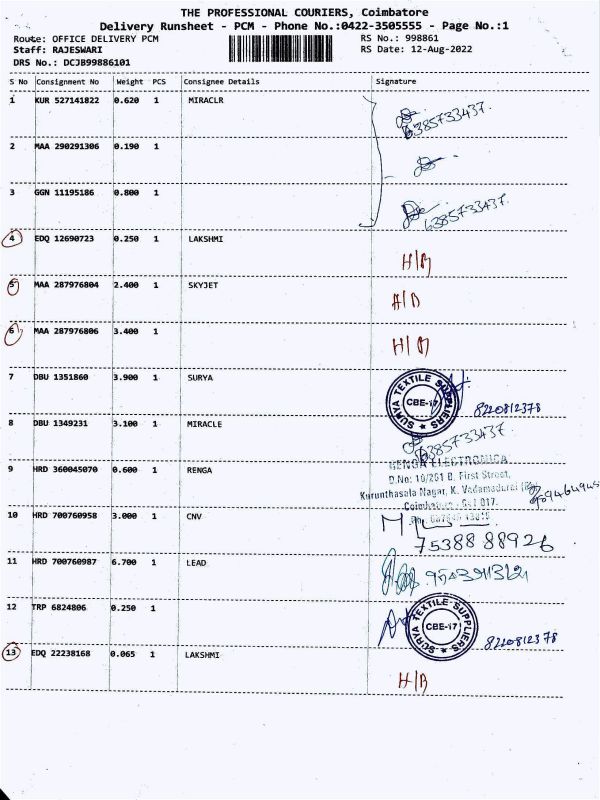 THE PROFESSIONAL COURIERS, Coimbatore
Delivery Runsheet - PCM - Phone No.:0422-3505555 - Page No.:1
Route: OFFICE DELIVERY PCM
RS No.: 998861
Staff: RAJESWARI
RS Date: 12-Aug-2022
DRS No.: DCJB99886101
S No Consignment No Weight PCS Consignee Details Signature
1 KUR 527141822 0.620 1 MIRACLR
6385733437.
2 MAA 290291306 0.190 1
3 GGN 11195186 0.800 1
6385733437.
4 EDQ 12690723 0.250 1 LAKSHMI
5 MAA 287976804 2.400 1 SKYJET
6 MAA 287976806 3.400 1
7 DBU 1351860 3.900 1 SURYA
SURYA TEXTILE SUPPLIERS CBE-17
8220812378
8 DBU 1349231 3.100 1 MIRACLE
6385733437.
9 HRD 360045070 0.600 1 RENGA
RENGA ELECTRONICA
D.No: 10/261 B, First Street,
Kurunthasala Nagar, K. Vadamadurai
Coimbatore - 641 017.
10 HRD 700760958 3.000 1 CNV
75388 88926
11 HRD 700760987 6.700 1 LEAD
12 TRP 6824806 0.250 1
SURYA TEXTILE SUPPLIERS CBE-17
8220812378
13 EDQ 22238168 0.065 1 LAKSHMI